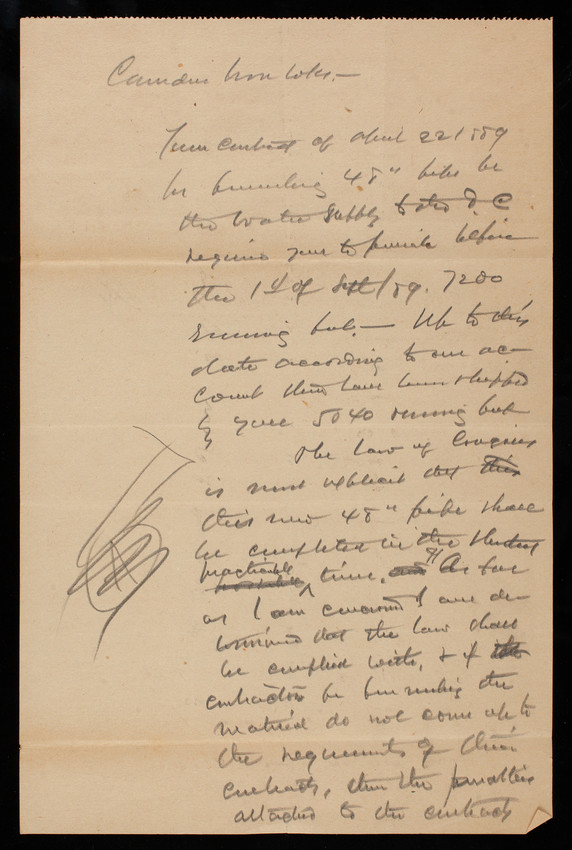 Camden Iron Wks.—
Your contract of April 22 1889
for furnishing 48" pipe for
the Water Supply to the D.C
requires you to furnish before
the 1st of Sept/89. 7200
running feet.— Up to this
date according to our ac-
count there have been shipped
by you 5040 running feet
The law of Congress
is most explicit that this
this new 48" pipe shall
be completed in the shortest
practicable
possible time, and As far
as I am concerned I am de-
termined that the law shall
be complied with, & if the
contractors for furnishing the
material do not come up to
the requirements of their
contracts, then the penalties
attached to the contracts